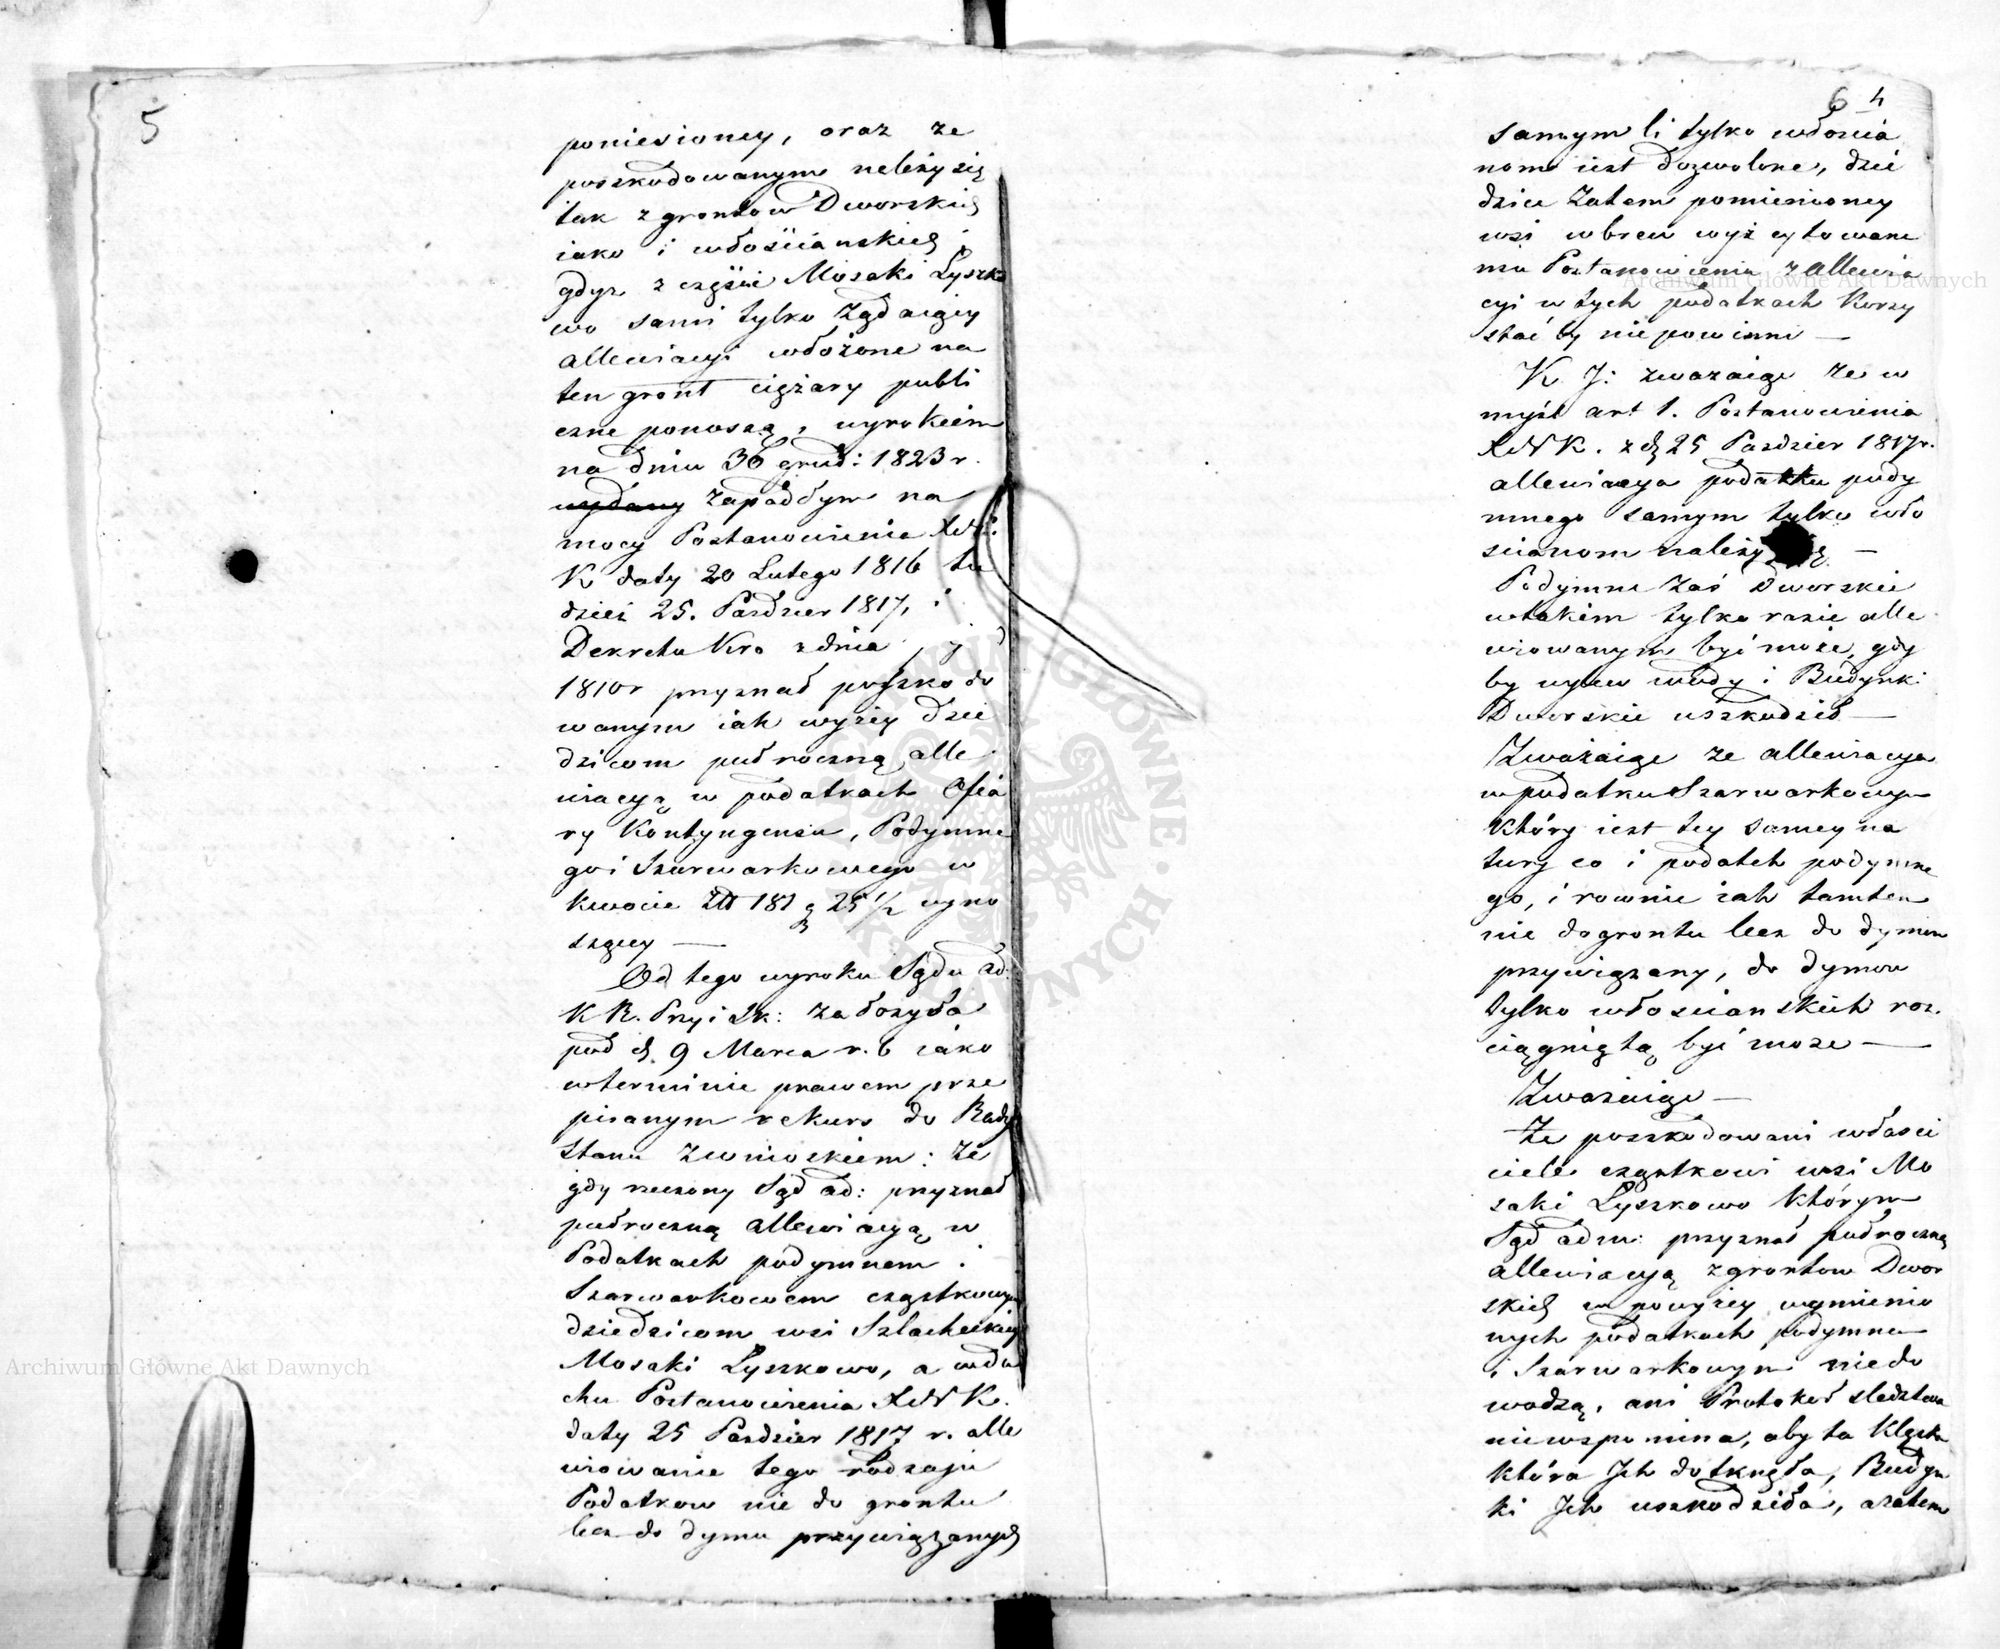 5
poniesioney, oraz że
poszkodowanym należy się
tak z grontow Dworskich
iako i włościańskich
gdyz z części Mosaki Łyszko
wo sami tylko żądaiący
allewiacyi włożone na
ten gront ciężary publi
czne ponoszą, wyrokiem
na dniu 30 grud: 1823 r.
wydany zapadłym na
mocy Postanowienia XN:
K daty 20 Lutego 1816 tu
dzież 25. Pazdzier 1817, i
Dekretu Kro z dnia
1810r przyznał poszkodo
wanym iak wyżey dzie
dzicom pułroczną alle
wiacyą w podatkach Ofia
ry Kontyngensu, Podymne
go i Szarwarkowego w
kwocie Złl 181 g 25 1/2 wyno
szącey —
Od tego wyroku Sądu ad:
K R. Przy i Sk: założyła
pod d. 9 Marca r. b iako
w terminie prawem prze
pisanym rekurs do Rady
Stanu z wnioskiem: że
gdy rzeczony Sąd ad: przyznał
pułroczną allewiacyą w
Podatkach podymnem i
Szarwarkowem cząstkowym
dziedzicom wsi Szlacheckiey
Mosaki Łyszkowo, a wdu
chu Postanowienia XNK.
daty 25 Pazdzier 1817 r. alle
wiowanie tego rodzaju
Podatkow nie do grontu
lecz do dymu przywiązanych
6 4
samym li tylko włościa
nom iest dozwolone, dzie
dzice zatem pomienioney
wsi wbrew wyż cytowane
mu Postanowieniu z allewia
cyi w tych podatkach korzy
stać by nie powinni —
K J: zważaiąc że w
myśl art 1. Postanowienia
XNK. z d 25 Pazdzier 1817r.
allewiacya podatku pody
mnego samym tylko wło
scianom należy się —
Podymne zaś Dworskie
w takim tylko razie alle
wiowanym być może, gdy
by wylew wody i Budynki
Dworskie uszkodził —
Zważaiąc że allewiacya
w podatku Szarwarkowym
który iest tey samey na
tury co i podatek podymne
go, i rownie iak tamten
nie do grontu lecz do dymow
przywiązany, do dymow
tylko włosciańskich roz.
ciągniętą być może —
Zważaiąc —
Że poszkodowani właści
ciele cząstkowi wsi Mo
saki Łyszkowo którym
Sąd adm: przyznał pułroczną
allewiacyą z grontow Dwor
skich w powyżey wymienio
nych podatkach podymnem
i Szarwarkowym niedo
wodzą, ani Protokoł sledztwa
niewspomina, aby ta klęska
która Ich dotknęła, Budyn
ki Ich uszkodziła, a zatem
Archiwum Główne Akt Dawnych
Archiwum Główne Akt Dawnych